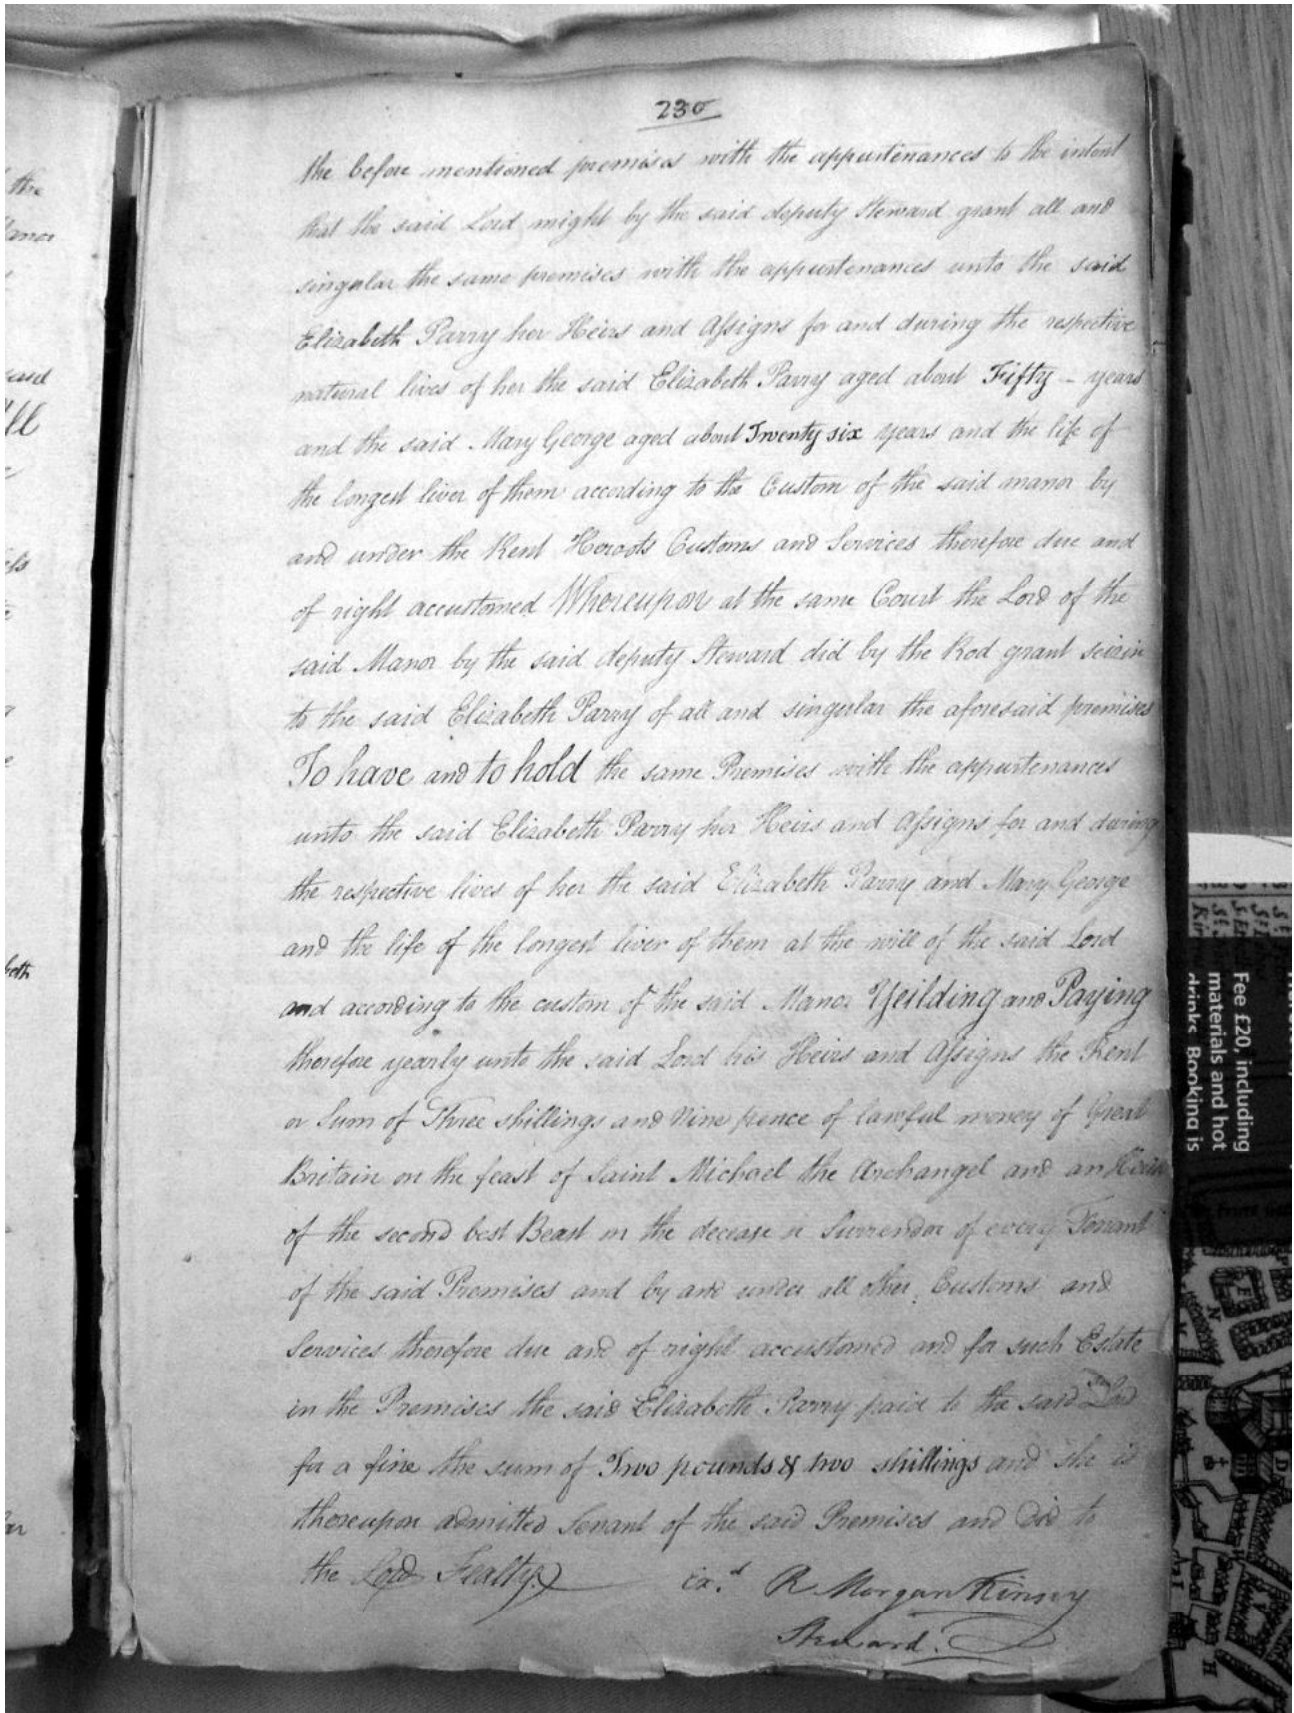 230
the before mentioned premises with the appurtenances to the intent
that the said Lord might by the said deputy Steward grant all and
singular the same premises with the appurtenances unto the said
Elizabeth Parry her Heirs and Assigns for and during the respective
natural lives of her the said Elizabeth Parry aged about Fifty - years
and the said Mary George aged about Twenty six years and the life of
the longest liver of them according to the Custom of the said manor by
and under the Rent Heriots Customs and Services therefore due and
of right accustomed Whereupon at the same Court the Lord of the
said Manor by the said deputy Steward did by the Rod grant seizin
to the said Elizabeth Parry of all and singular the aforesaid premises
To have and to hold the same Premises with the appurtenances
unto the said Elizabeth Parry her Heirs and Assigns for and during
the respective lives of her the said Elizabeth Parry and Mary George
and the life of the longest liver of them at the will of the said Lord
and according to the custom of the said Manor Yeilding and Paying
therefore yearly unto the said Lord his Heirs and Assigns the Rent
or Sum of Three shillings and Nine pence of lawful money of Great
Britain on the feast of Saint Michael the Archangel and an
of the second best Beast on the decease or Surrender of every Tenant
of the said Premises and by and under all other Customs and
Services therefore due and of right accustomed and for such Estate
in the Premises the said Elizabeth Parry paid to the said Lord
for a fine the sum of Two pounds & two shillings and she is
thereupon admitted Tenant of the said Premises and did to
the Lord Fealty
R Morgan Kinsey
Steward.
the
said
Fee £20, including
materials and hot
drinks. Booking is